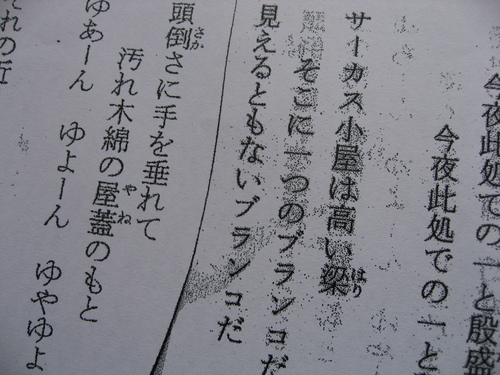 今夜此処での一と殷盛
今夜此処での一と
サーカス小屋は高い梁
はり
そこに一つのブランコだ
見えるともないブランコだ
頭倒さに手を垂れて
さか
汚れ木綿の屋蓋のもと
やね
ゆあーん ゆよーん ゆやゆよ
それの近